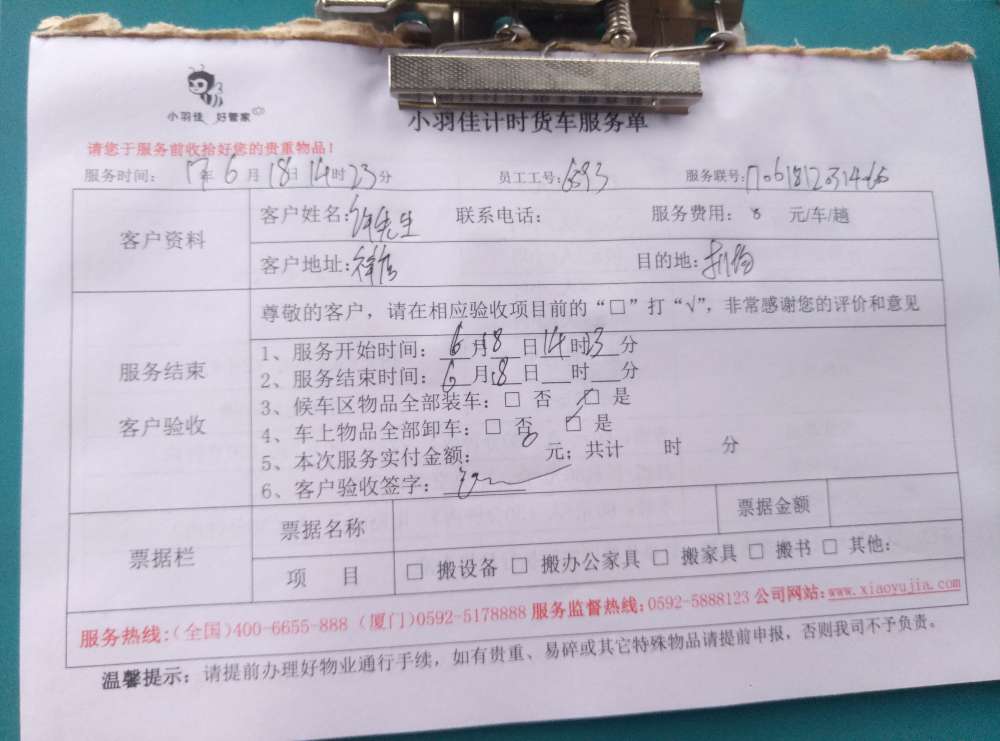 小羽佳 好管家
小羽佳计时货车服务单
请您于服务前收拾好您的贵重物品！
服务时间： 17年6月18日14时23分 员工工号： 服务联号：
客户资料
客户姓名：许先生 联系电话： 服务费用： 元/车/趟
客户地址： 目的地：
尊敬的客户，请在相应验收项目前的“□”打“√”，非常感谢您的评价和意见
服务结束
客户验收
1、服务开始时间：6月18日14时23分
2、服务结束时间：6月18日 时 分
3、候车区物品全部装车：□ 否 □ 是
4、车上物品全部卸车：□ 否 □ 是
5、本次服务实付金额： 元；共计 时 分
6、客户验收签字：
票据栏
票据名称 票据金额
项 目 □ 搬设备 □ 搬办公家具 □ 搬家具 □ 搬书 □ 其他：
服务热线：(全国)400-6655-888 (厦门)0592-5178888 服务监督热线：0592-5888123 公司网站：www.xiaoyujia.com
温馨提示：请提前办理好物业通行手续，如有贵重、易碎或其它特殊物品请提前申报，否则我司不予负责。